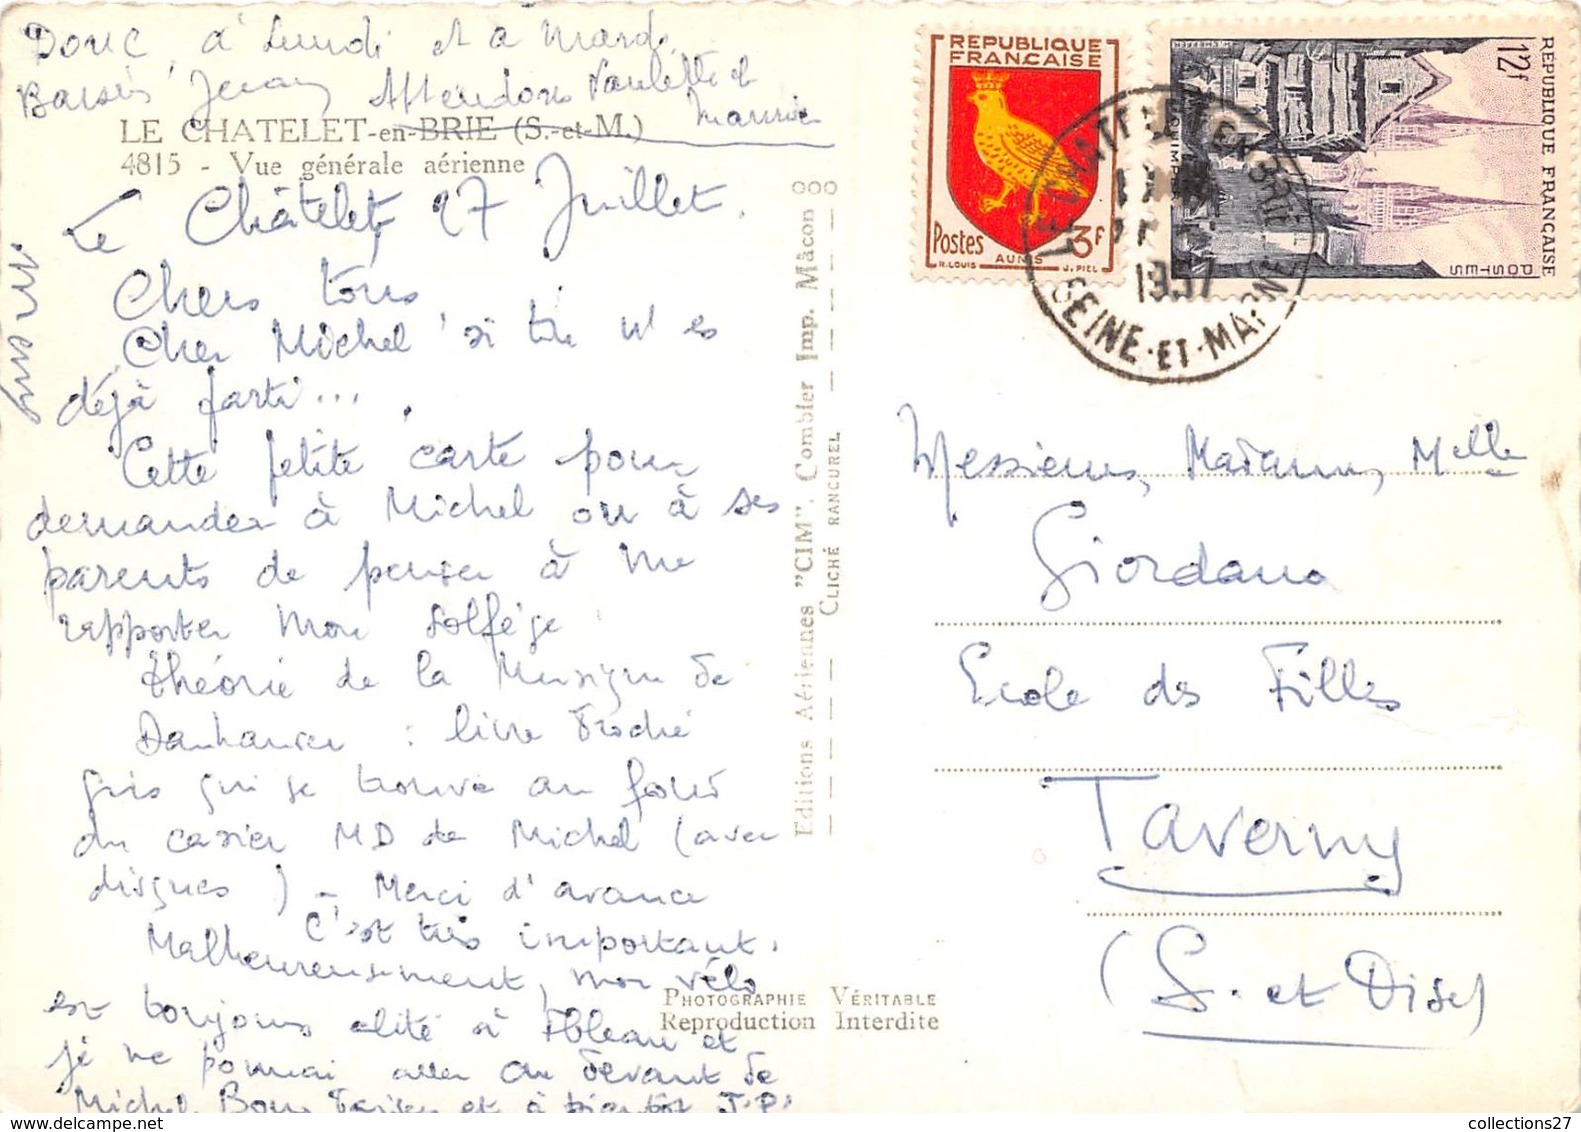 Donc à Lundi et à Mardi
Baisers Jenny Attendons Paulette et
Maurice
LE CHATELET-en-BRIE (S.-et-M.)
4815 - Vue générale aérienne
Le Châtelet, 27 Juillet.
Chers tous
Cher Michel si tu n'es
déjà parti...
Cette petite carte pour
demander à Michel ou à ses
parents de penser à me
rapporter mon Solfège
théorie de la Musique de
Danhauser : livre broché
gris qui se trouve au fond
du casier MD de Michel (avec
disques) - Merci d'avance
C'est très important.
Malheureusement, mon vélo
est toujours alité à Fbleau et
je ne pourrai aller au devant de
Michel. Bons baisers et à bientôt J.P.
Editions Aériennes "CIM". Combier Imp. Mâcon
CLICHÉ RANCUREL
PHOTOGRAPHIE VÉRITABLE
Reproduction Interdite
REPUBLIQUE
FRANÇAISE
Postes 3F
AUNIS
R. LOUIS J. PIEL
12f
REPUBLIQUE FRANÇAISE
POSTES
QUIMPER
LE CHATELET EN BRIE
1957
SEINE-ET-MARNE
Messieurs, Madame, Melle
Giordano
Ecole des Filles
Taverny
(S. et Oise)
collections27